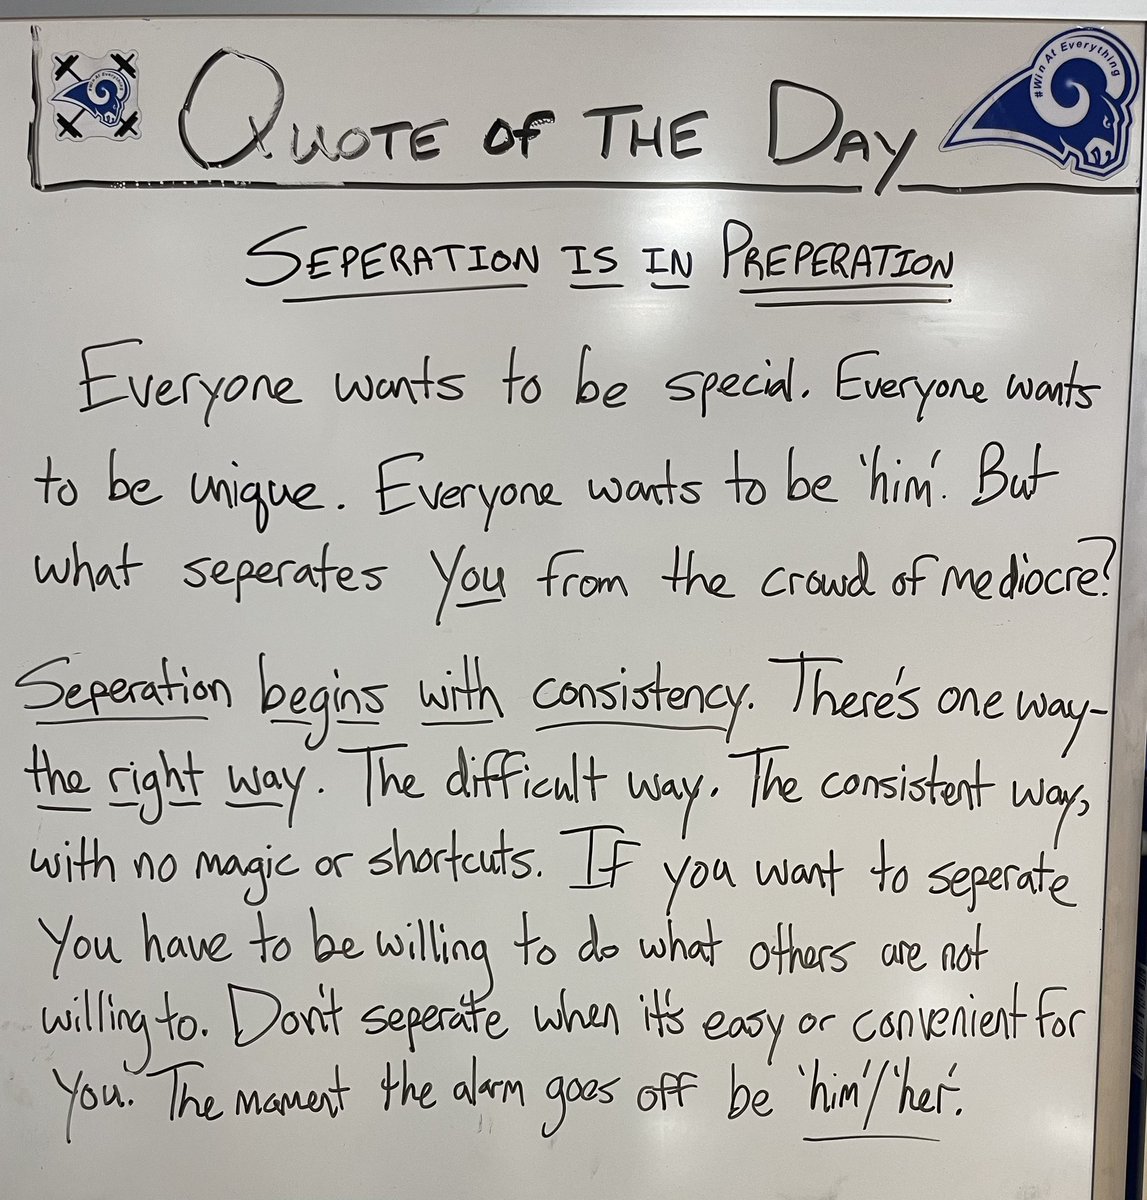 #Win At Everything
QUOTE OF THE DAY
#Win At Everything
SEPERATION IS IN PREPERATION
Everyone wants to be special. Everyone wants
to be unique. Everyone wants to be 'him'. But
what seperates you from the crowd of mediocre?
Seperation begins with consistency. There's one way-
the right way. The difficult way. The consistent way,
with no magic or shortcuts. If you want to seperate
you have to be willing to do what others are not
willing to. Don't seperate when it's easy or convenient for
you. The moment the alarm goes off be 'him'/'her'.